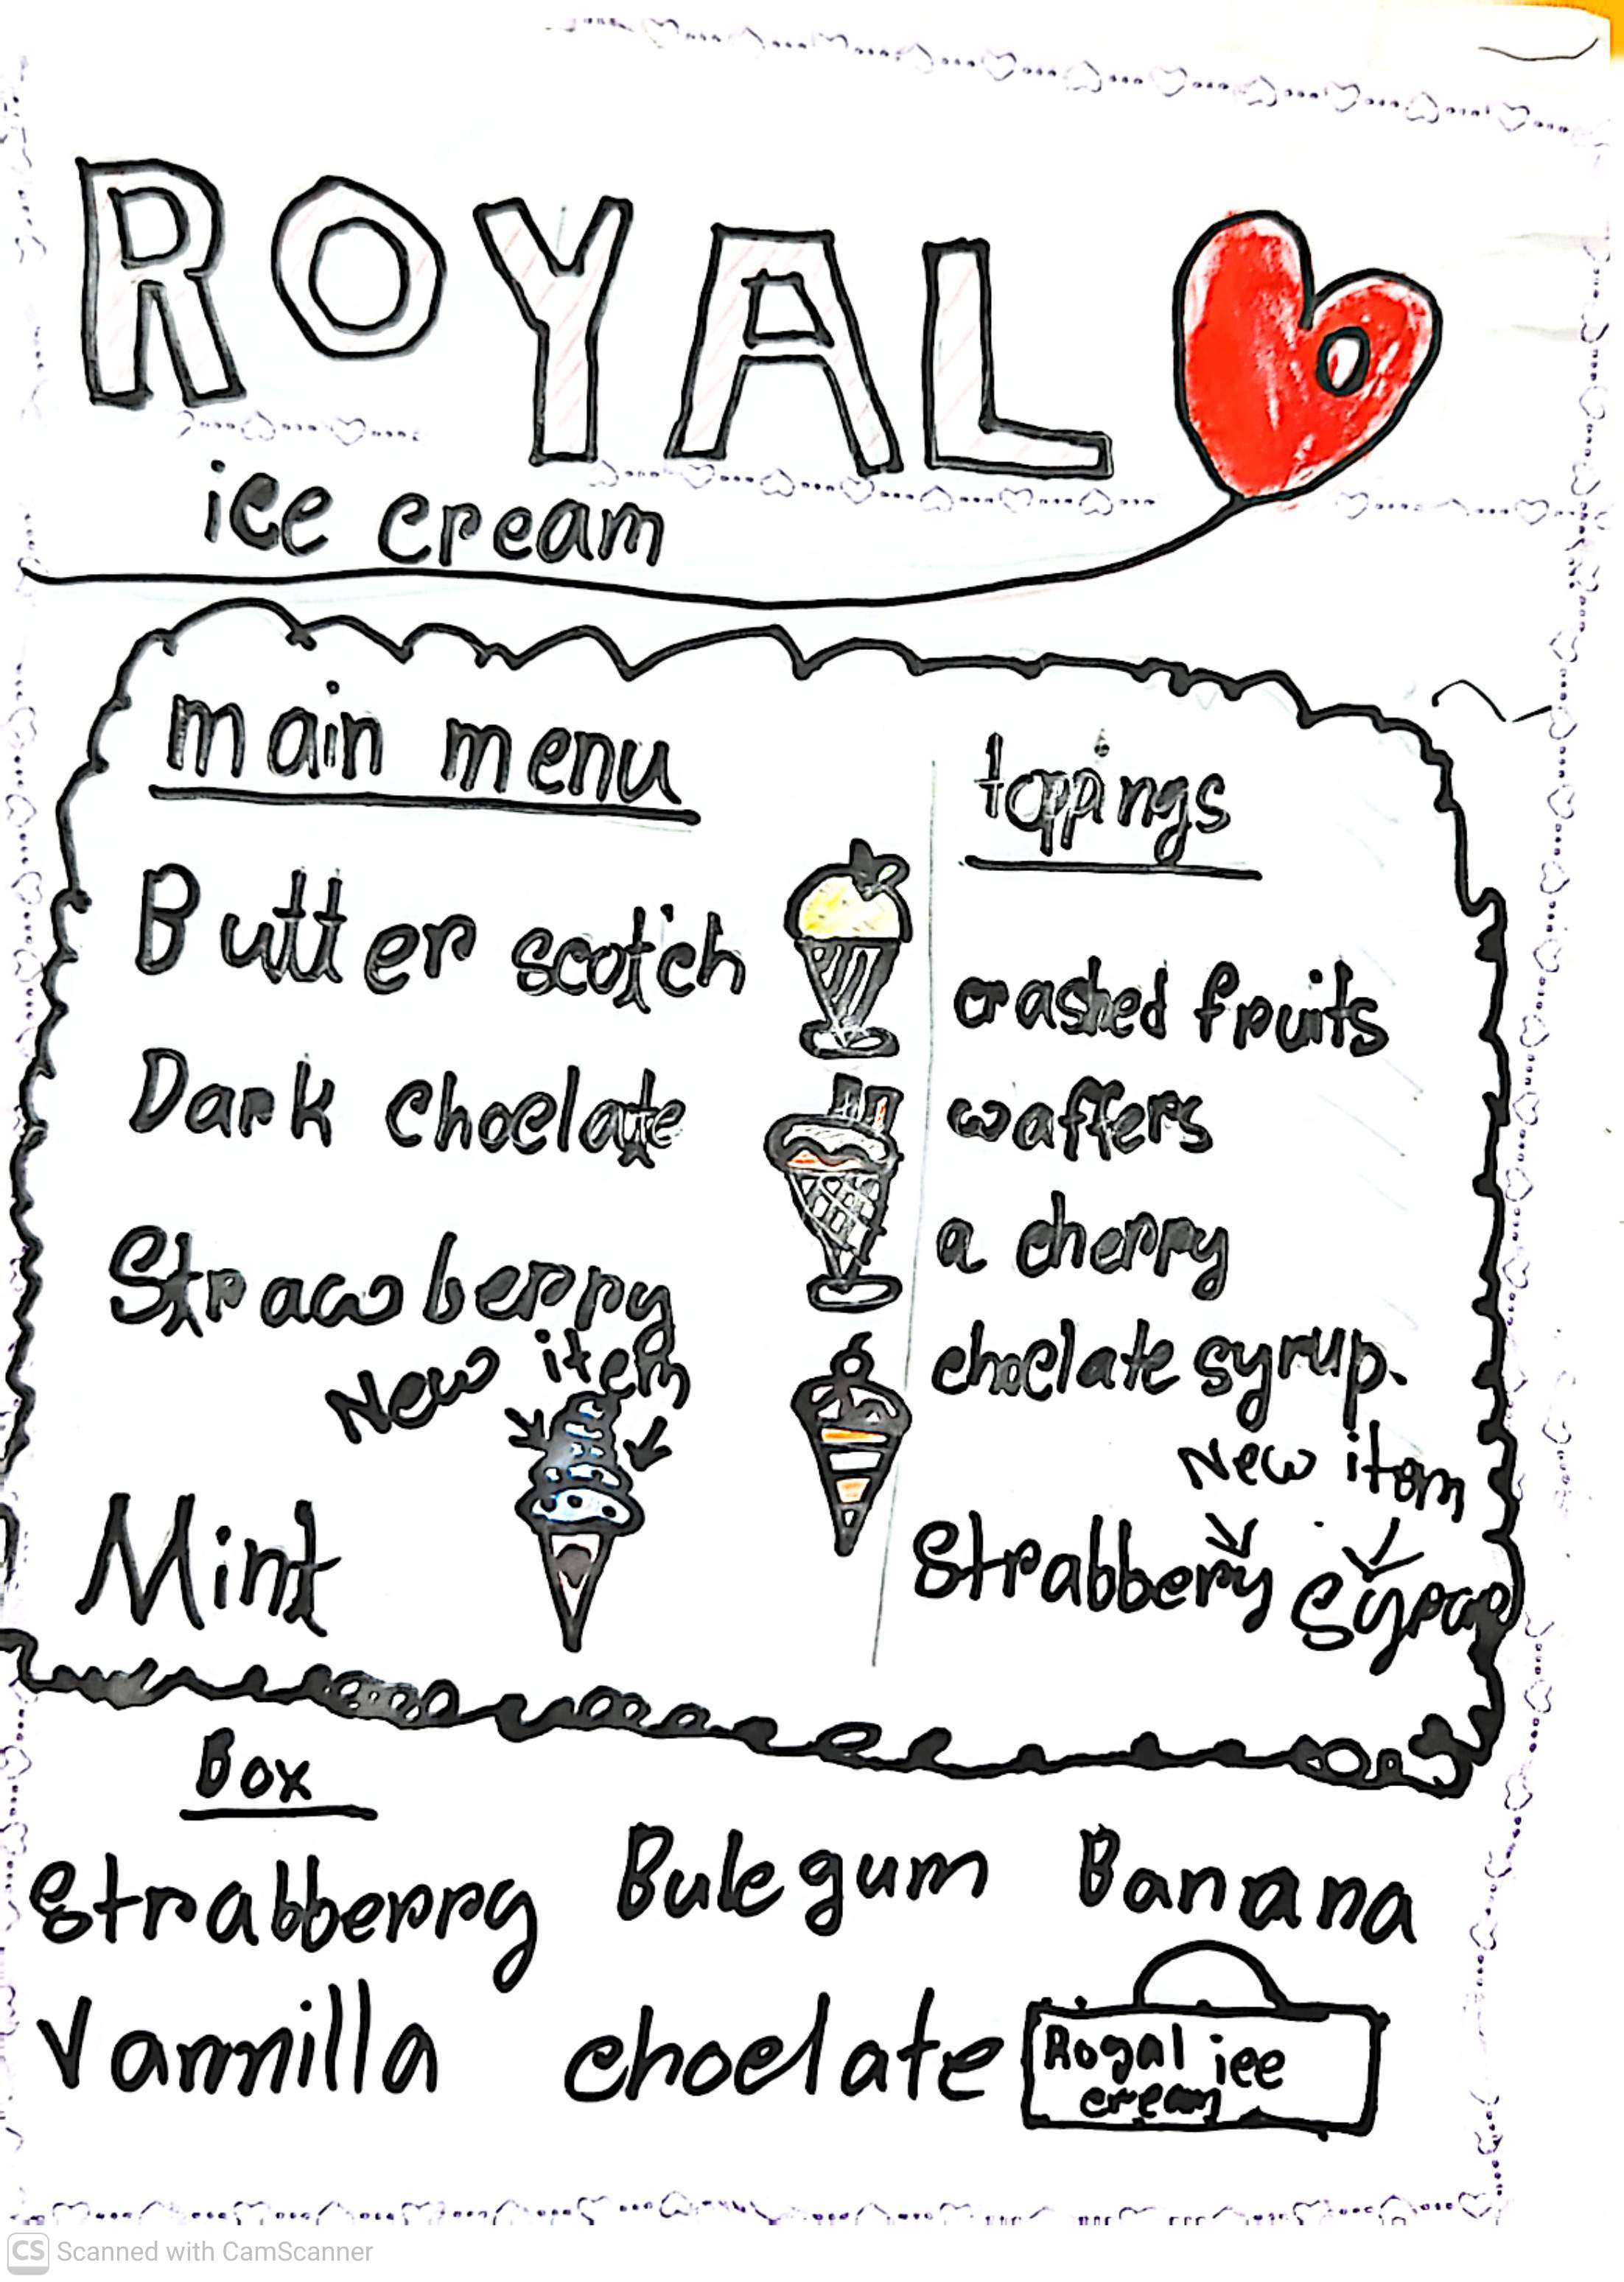 ROYAL
ice cream
main menu
Butter scotch
Dark choclate
Strawberry
New item
Mint
toppings
crashed fruits
waffers
a cherry
choclate syrup.
New itom
Strabbery Syrup
Box
Strabberry Bulegum Banana
Vannilla choclate
Royal ice
cream
CS Scanned with CamScanner